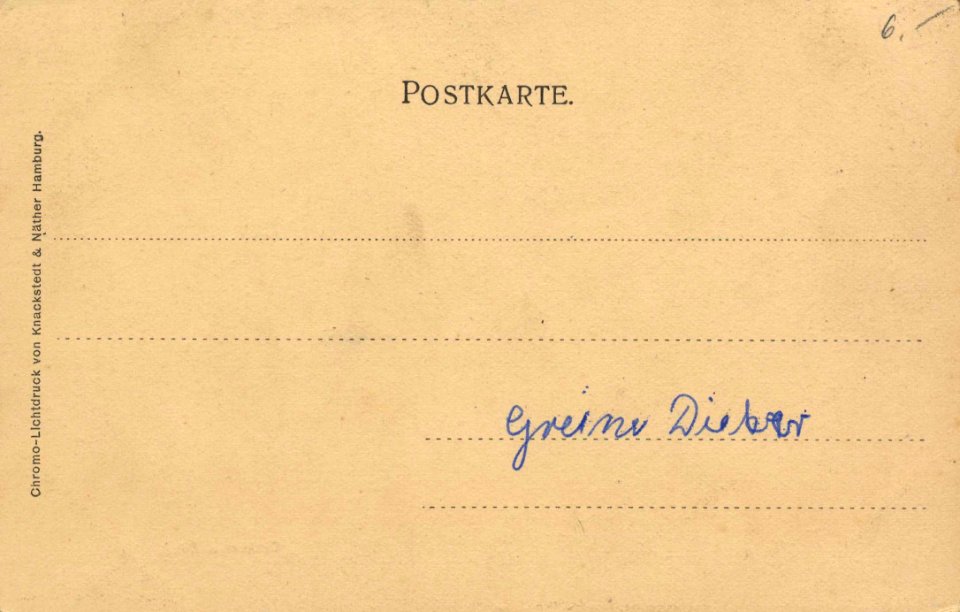 6.—
POSTKARTE.
Chromo-Lichtdruck von Knackstedt & Näther Hamburg.
Greiner